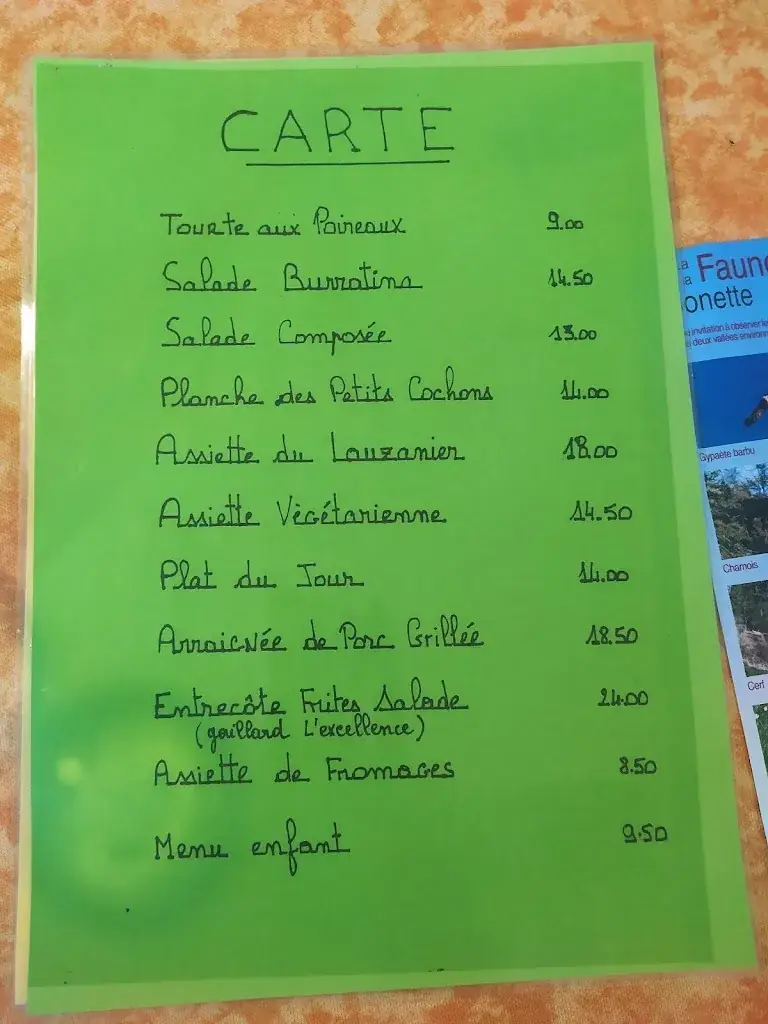 CARTE
Tourte aux Poireaux 9.00
Salade Burratina 14.50
Salade Composée 13.00
Planche des Petits Cochons 14.00
Assiette du Lauzanier 18.00
Assiette Végétarienne 14.50
Plat du Jour 14.00
Arraignée de Porc Grillée 18.50
Entrecôte Frites Salade 24.00
(gaillard L'excellence)
Assiette de Fromages 8.50
Menu enfant 9.50
Faune
onette
invitation à observer
deux vallées
Gypaète barbu
Chamois
Cerf